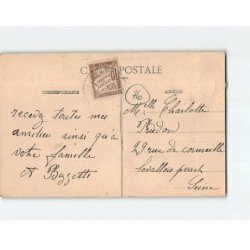 CARTE POSTALE
CORRESPONDANCE
ADRESSE
recevez toutes mes
amitiés ainsi qu'à
votre famille
76
Melle Charlotte
29 rue de cormeille
Levallois perret
Seine